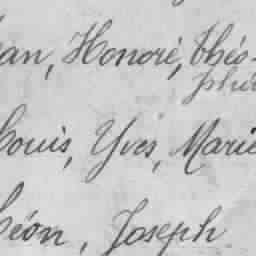 ean, Honoré, Thés-
phi
Louis, Yves, Marie
Léon, Joseph